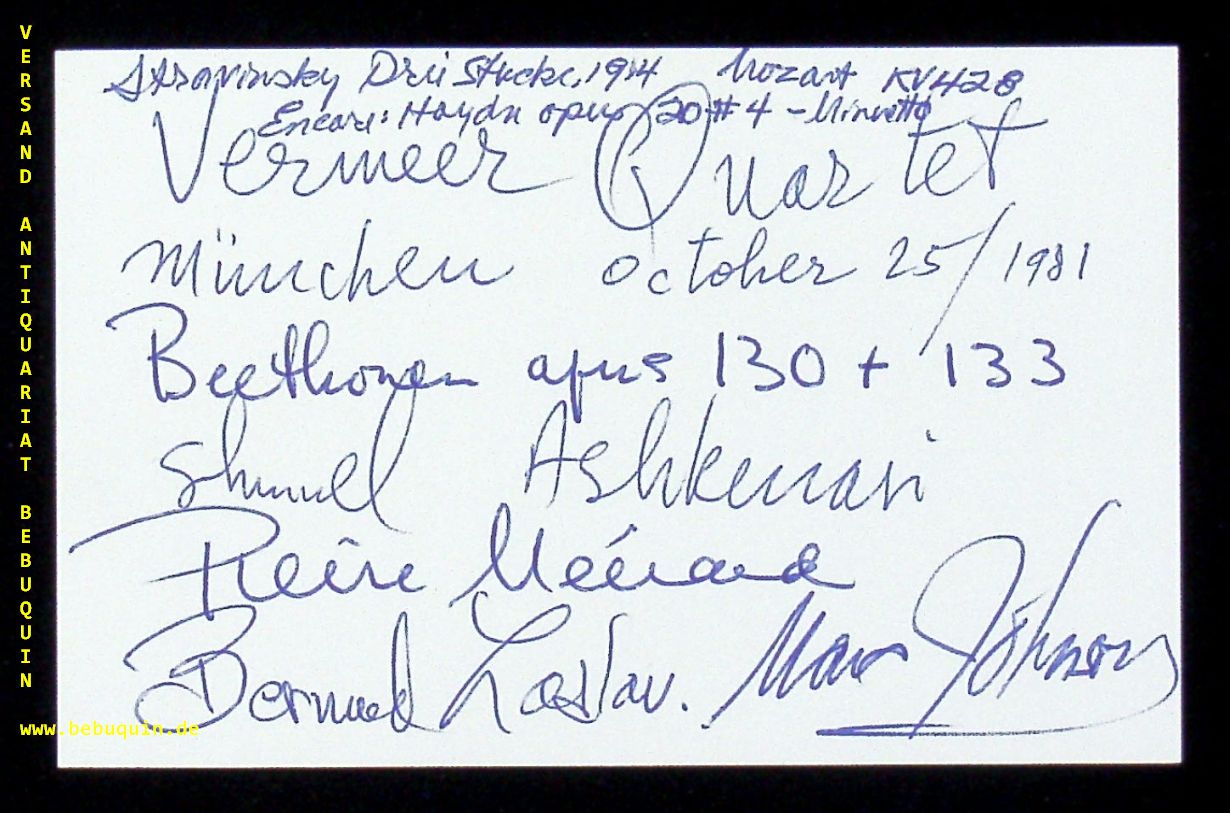 VERSAND ANTIQUARIAT BEBUQUIN
Stravinsky Drei Stücke, 1914 Mozart KV428
Encore: Haydn opus 20 #4 - Minuetto
Vermeer Quartet
München October 25/1981
Beethoven opus 130 + 133
Shmuel Ashkenasi
Pierre Ménard
Bernard Zaslav. Marc Johnson
www.bebuquin.de